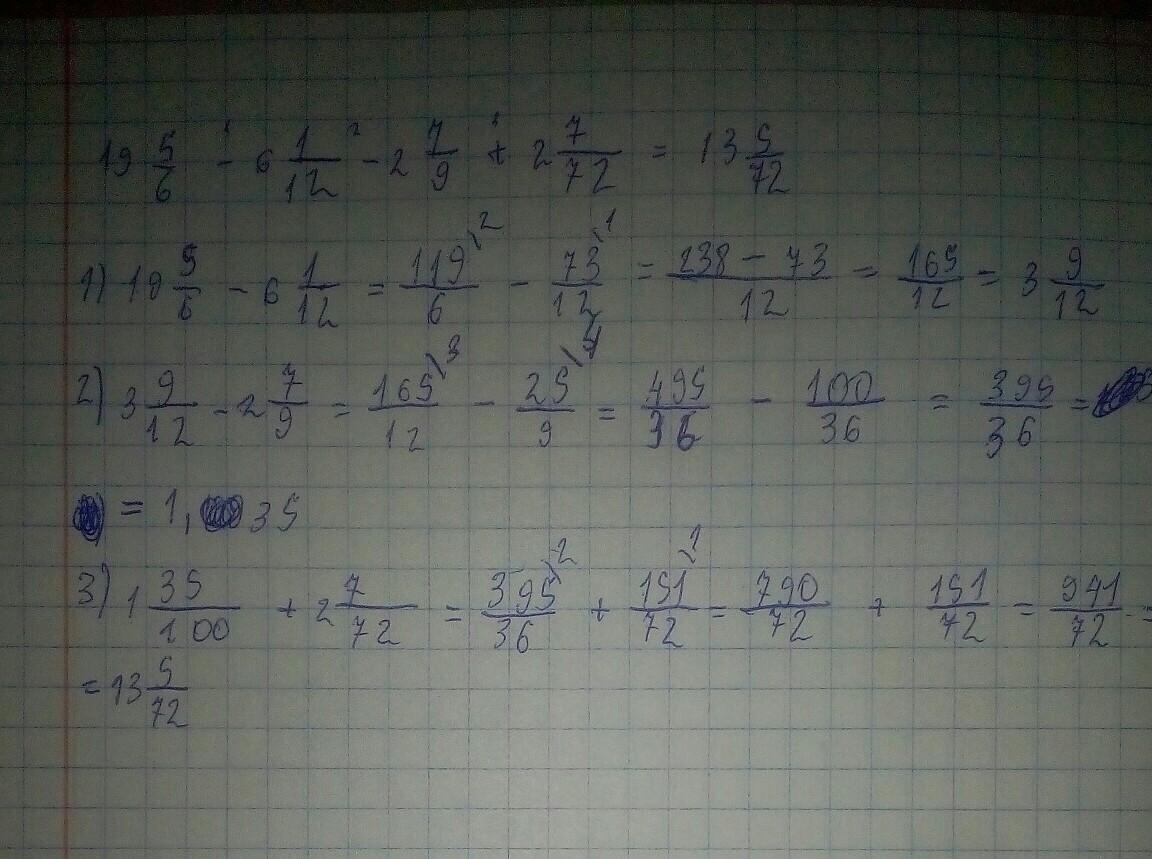 19 5/6 - 6 1/12 - 2 7/9 + 2 7/72 = 13 5/72
1) 19 5/6 - 6 1/12 = 119/6 \2 - 73/12 \1 = 238 - 73/12 = 165/12 = 3 9/12
2) 3 9/12 - 2 7/9 = 165/12 \3 - 25/9 \4 = 495/36 - 100/36 = 395/36 =
= 1, 35
3) 1 35/100 + 2 7/72 = 395/36 \2 + 151/72 \1 = 790/72 + 151/72 = 941/72 =
= 13 5/72